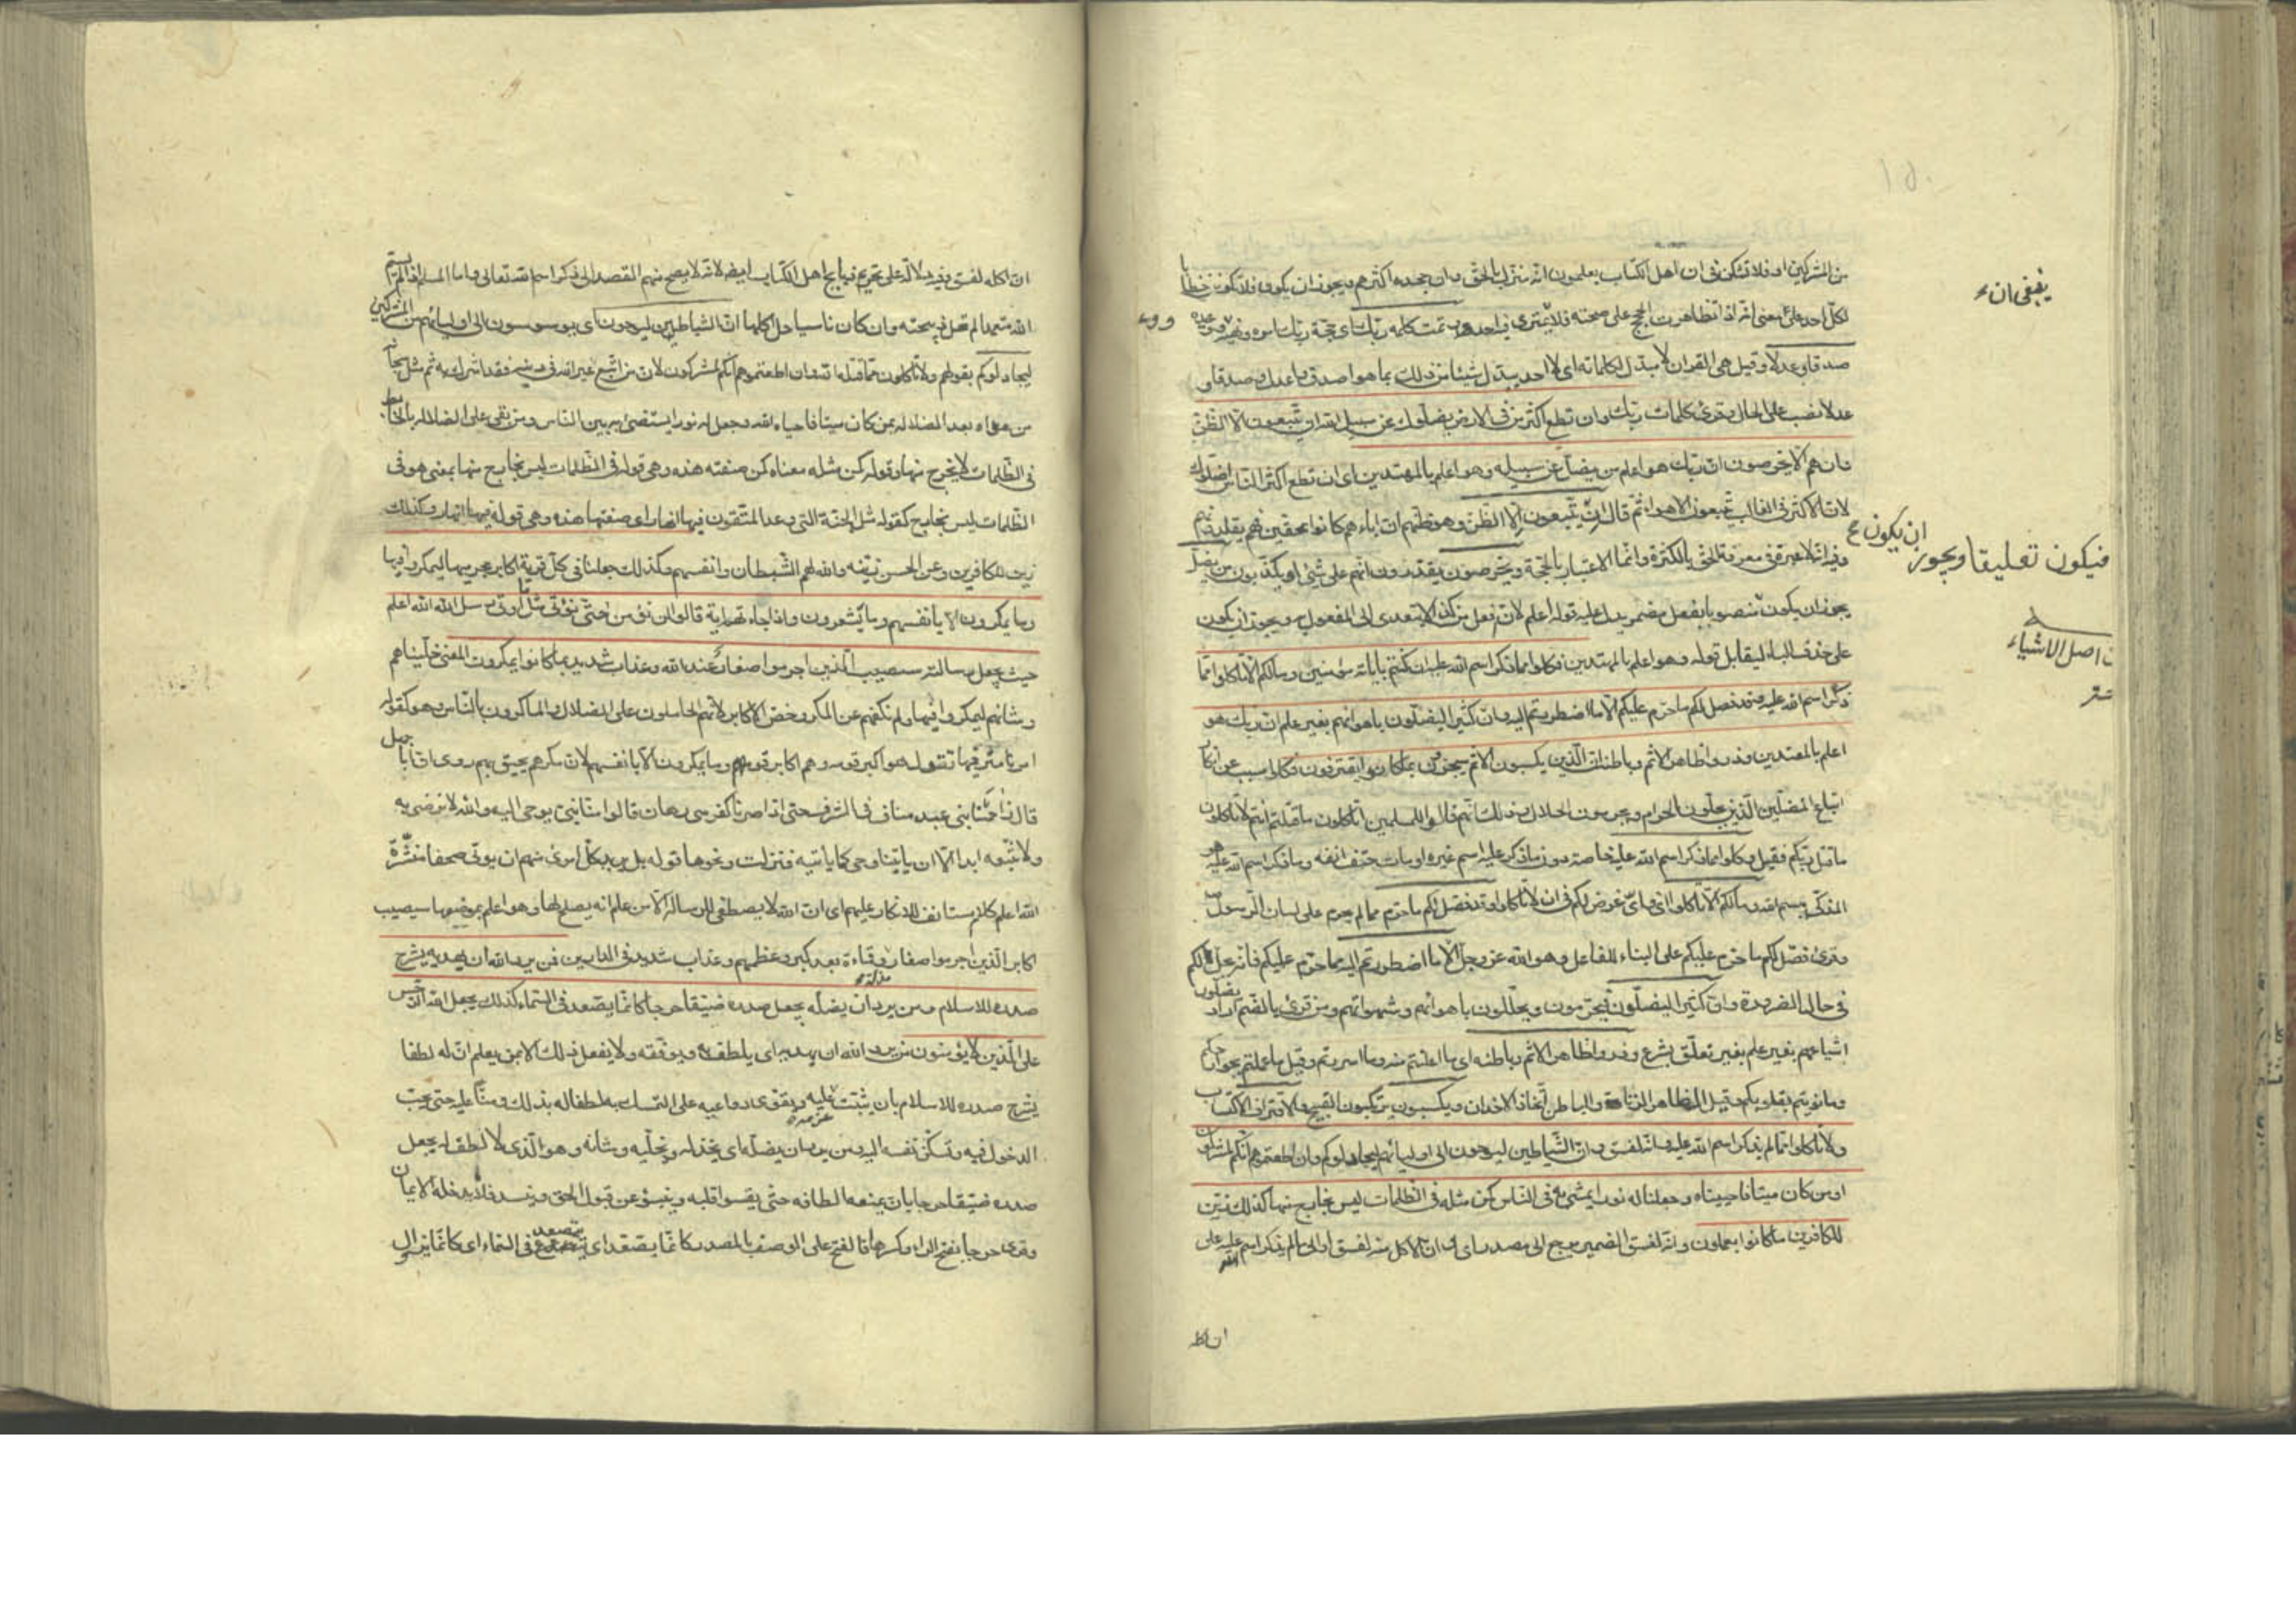 من المشركين او فلا تشكن فى ان اهل الكتاب يعلمون انه منزل بالحق وان جحده اكثرهم ويجوز ان يكون فلا تكونن خطابا
لكل احد على معنى انه اذا تظاهرت الحجج على صحته فلا يمترى فيه احد وتمت كلمة ربك اى حجة ربك
صدقا وعدلا وقيل هى القران لا مبدل لكلماته اى لا احد يبدل شيئا من ذلك بما هو اصدق واعدل وصدقا و
عدلا نصب على الحال وقرئ كلمات ربك وان تطع اكثر من فى الارض يضلوك عن سبيل الله ان يتبعون الا الظن
وان هم الا يخرصون ان ربك هو اعلم من يضل عن سبيله وهو اعلم بالمهتدين اى ان تطع اكثر الناس اضلوك
لان الاكثر فى الغالب يتبعون الاهواء ثم قال ان يتبعون الا الظن وهو ظنهم ان اباءهم كانوا محقين فهم يقلدونهم
وفيه انه لا عبرة فى معرفة الحق بالكثرة وانما الاعتبار بالحجة ويخرصون يقدرون انهم على شئ او يكذبون من يضل
يجوز ان يكون منصوبا بفعل مضمر يدل عليه قوله اعلم لان افعل من كذا لا يتعدى الى المفعول به ويجوز ان يكون
على حذف الباء ليقابل قوله وهو اعلم بالمهتدين فكلوا مما ذكر اسم الله عليه ان كنتم باياته مؤمنين وما لكم الا تاكلوا مما
ذكر اسم الله عليه وقد فصل لكم ما حرم عليكم الا ما اضطررتم اليه وان كثيرا ليضلون باهوائهم بغير علم ان ربك هو
اعلم بالمعتدين وذروا ظاهر الاثم وباطنه ان الذين يكسبون الاثم سيجزون بما كانوا يقترفون فكلوا سبب عن انكار
اتباع المضلين الذين يحلون الحرام ويحرمون الحلال وذلك انهم قالوا للمسلمين اتاكلون ما قتلتم انتم ولا تاكلون
ما قتل ربكم فقيل فكلوا مما ذكر اسم الله عليه خاصة دون ما ذكر عليه اسم غيره او مات حتف انفه وما ذكر اسم الله عليه هو
المذكى ببسم الله وما لكم الا تاكلوا اى واى غرض لكم فى ان لا تاكلوا وقد فصل لكم ما حرم مما لم يحرم على لسان الرسول
وقرئ فصل لكم ما حرم عليكم على البناء للفاعل وهو الله عز وجل الا ما اضطررتم اليه مما حرم عليكم فانه حل لكم
فى حال الضرورة وان كثيرا ليضلون فيحرمون ويحللون باهوائهم وشهواتهم ومن قرئ بالضم اراد يضلون
اشياعهم بغير علم بغير تعلق بشرع وذروا ظاهر الاثم وباطنه اى ما اعلنتم منه وما اسررتم وقيل ما عملتم بجوارحكم
وما نويتم بقلوبكم وقيل الظاهر الزنا والباطن اتخاذ الاخدان ويكسبون يرتكبون القبيح والاقتراف الاكتساب
ولا تاكلوا مما لم يذكر اسم الله عليه وانه لفسق وان الشياطين ليوحون الى اوليائهم ليجادلوكم وان اطعتموهم انكم لمشركون
اومن كان ميتا فاحييناه وجعلنا له نورا يمشى به فى الناس كمن مثله فى الظلمات ليس بخارج منها كذلك زين
للكافرين ما كانوا يعملون وانه لفسق الضمير يرجع الى مصدر اى وان الاكل منه لفسق او الى ما لم يذكر اسم الله عليه على
ينبغى ان
ان يكون
فيكون تعليقا ويجوز
اصل الاشياء
ان اكله لفسق وفيه دلالة على تحريم ذبايح اهل الكتاب ايضا لانه لا يصح منهم القصد الى ذكر اسم الله تعالى واما المسلم اذا لم يسم
الله متعمدا لم تحل ذبيحته وان كان ناسيا حل اكلها ان الشياطين ليوحون اى يوسوسون الى اوليائهم من المشركين
ليجادلوكم بقولهم ولا تاكلون مما قتله الله وان اطعتموهم انكم لمشركون لان من اتبع غير الله فى دينه فقد اشرك به ثم مثل سبحانه
من هداه بعد الضلالة بمن كان ميتا فاحياه الله وجعل له نورا يستضئ به بين الناس ومن بقى على الضلالة بالخابط
فى الظلمات لا يخرج منها وقوله كمن مثله معناه كمن صفته هذه وهى قوله فى الظلمات ليس بخارج منها بمعنى هو فى
الظلمات ليس بخارج كقوله مثل الجنة التى وعد المتقون فيها انهار اى صفتها هذه وهى قوله فيها انهار وكذلك
زين للكافرين وعن الحسن زينه والله لهم الشيطان وانفسهم وكذلك جعلنا فى كل قرية اكابر مجرميها ليمكروا فيها
وما يمكرون الا بانفسهم وما يشعرون واذا جاءتهم اية قالوا لن نؤمن حتى نؤتى مثل ما اوتى رسل الله الله اعلم
حيث يجعل رسالته سيصيب الذين اجرموا صغار عند الله وعذاب شديد بما كانوا يمكرون المعنى خليناهم
وشانهم ليمكروا فيها ولم نكفهم عن المكر وخص الاكابر لانهم الحاملون على الضلال والماكرون بالناس وهو كقوله
امرنا مترفيها تقول هو اكبر قومه وهم اكابر قومهم وما يمكرون الا بانفسهم لان مكرهم يحيق بهم روى ان ابا جهل
قال زاحمنا بنى عبد مناف فى الشرف حتى اذا صرنا كفرسى رهان قالوا منا نبى يوحى اليه والله لا نرضى به
ولا نتبعه ابدا الا ان ياتينا وحى كما ياتيه فنزلت ونحوها قوله بل يريد كل امرئ منهم ان يؤتى صحفا منشرة
الله اعلم كلام مستانف للانكار عليهم اى ان الله لا يصطفى للرسالة الا من علم انه يصلح لها وهو اعلم بموضعها سيصيب
اكابر الذين اجرموا صغار وقماءة بعد كبرهم وعظمهم وعذاب شديد فى الدارين فمن يرد الله ان يهديه يشرح
صدره للاسلام ومن يرد ان يضله يجعل صدره ضيقا حرجا كانما يصعد فى السماء كذلك يجعل الله الرجس
على الذين لا يؤمنون من يرد الله ان يهديه اى يلطف به ويوفقه ولا يفعل ذلك الا بمن يعلم ان له لطفا
يشرح صدره للاسلام بان يثبت عزمه عليه ويقوى دواعيه على التمسك به لطفا له بذلك ومنا عليه حتى يحب
الدخول فيه وتسكن نفسه اليه ومن يرد ان يضله اى يخذله ويخليه وشانه وهو الذى لا لطف له يجعل
صدره ضيقا حرجا بان يمنعه الطافه حتى يقسو قلبه وينبو عن قبول الحق وينسد فلا يدخله الايمان
وقرئ حرجا بفتح الراء وكسرها فالفتح على الوصف بالمصدر كانما يصعد اى يتصعد فى السماء اى كانما يزاول